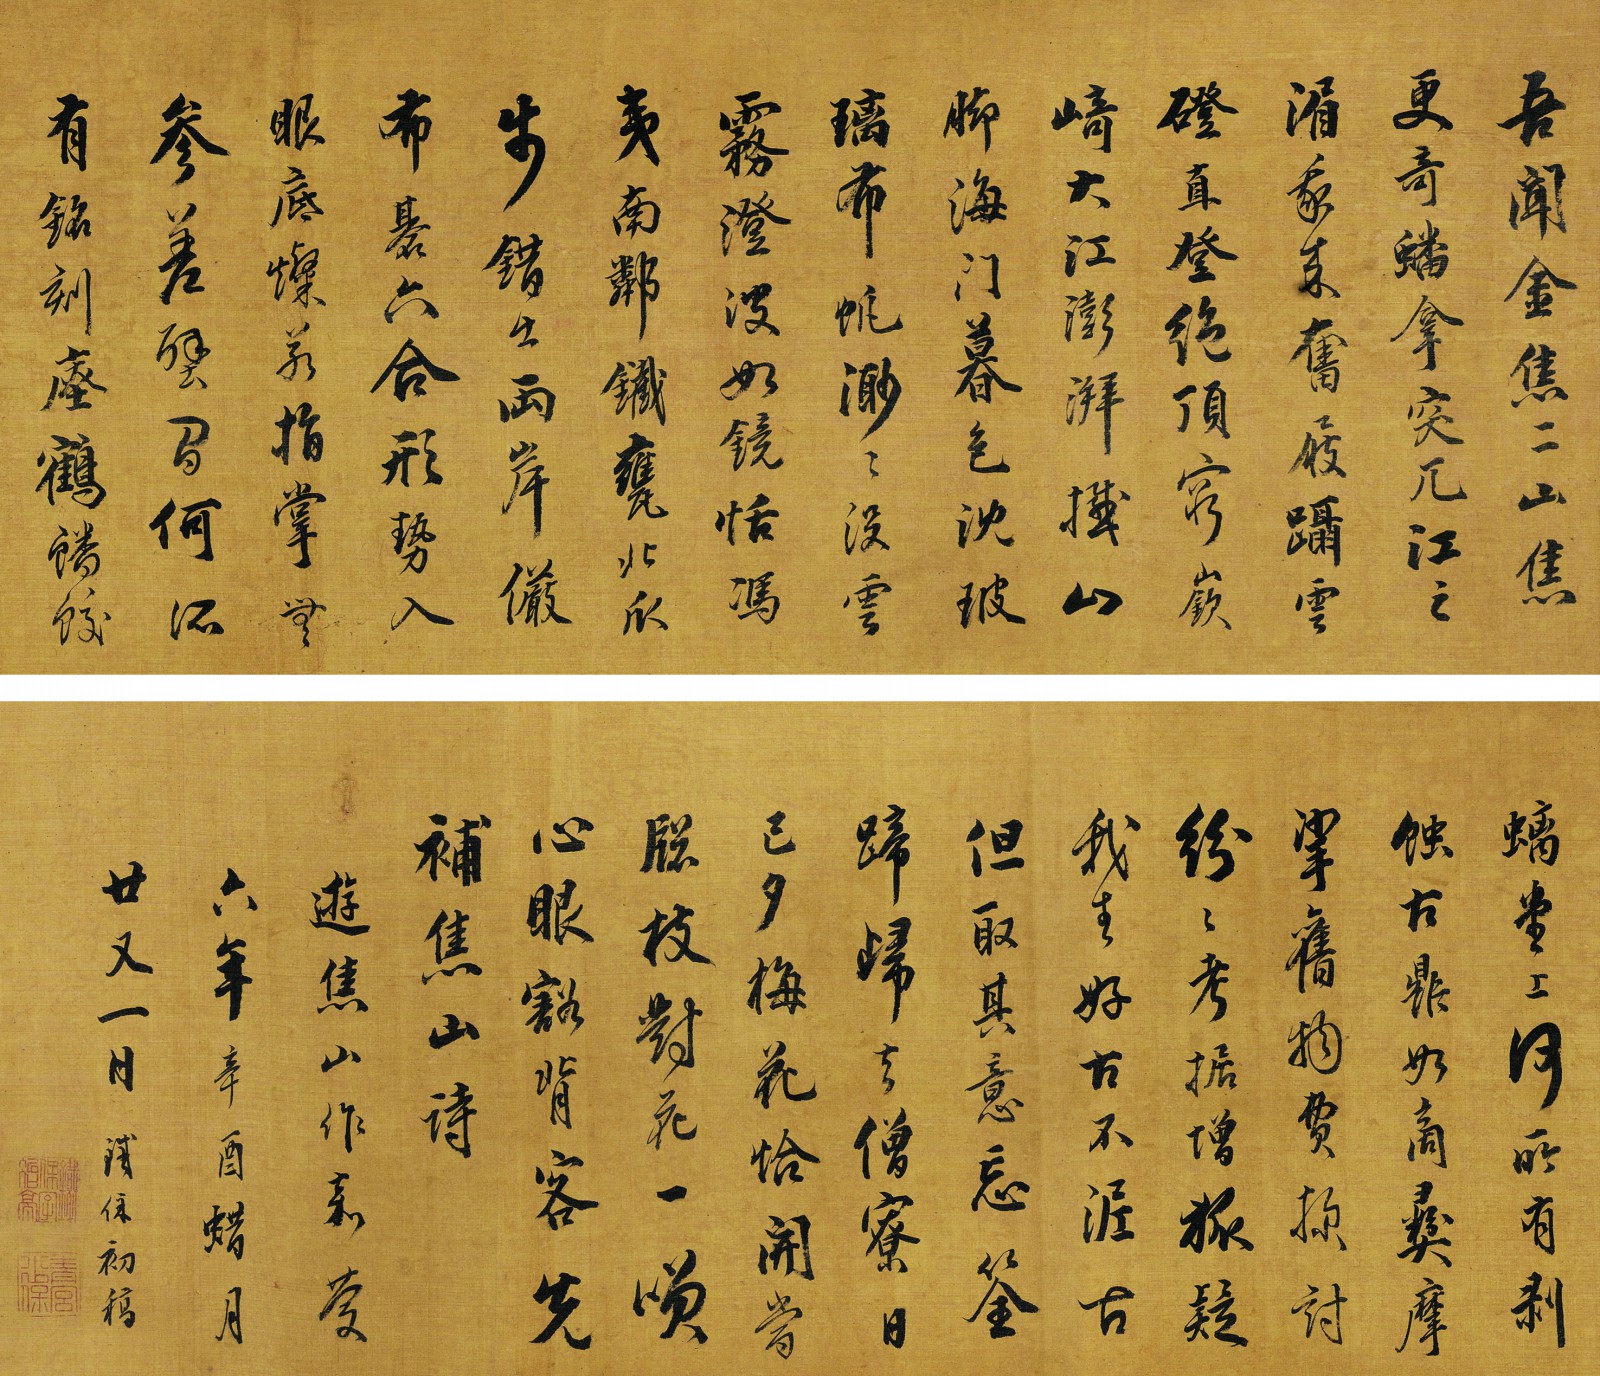 吾聞金焦二山焦
更奇蟠拿突兀江之
湄我來奮屐躡雲
磴直登絕頂窮嶔
崎大江澎湃撼山
腳海門暮色沈玻
璃布帆渺渺沒雲
霧澄波如鏡恬馮
夷南鄰鐵甕北瓜
步錯出兩岸儼
布碁六合形勢入
眼底燦若指掌無
參差壁間何所
有銘刻瘞鶴蟠蛟
螭堂上何所有剝
蝕古鼎如商彝摩
挲舊物費探討
紛紛考据增狐疑
我生好古不泥古
但取其意忘筌
蹄歸去僧寮日
已夕梅花恰開當
牕枝對花一嗅
心眼豁背客先
補焦山詩
遊焦山作嘉慶
六年辛酉蜡月
廿又一日鐵保初稿